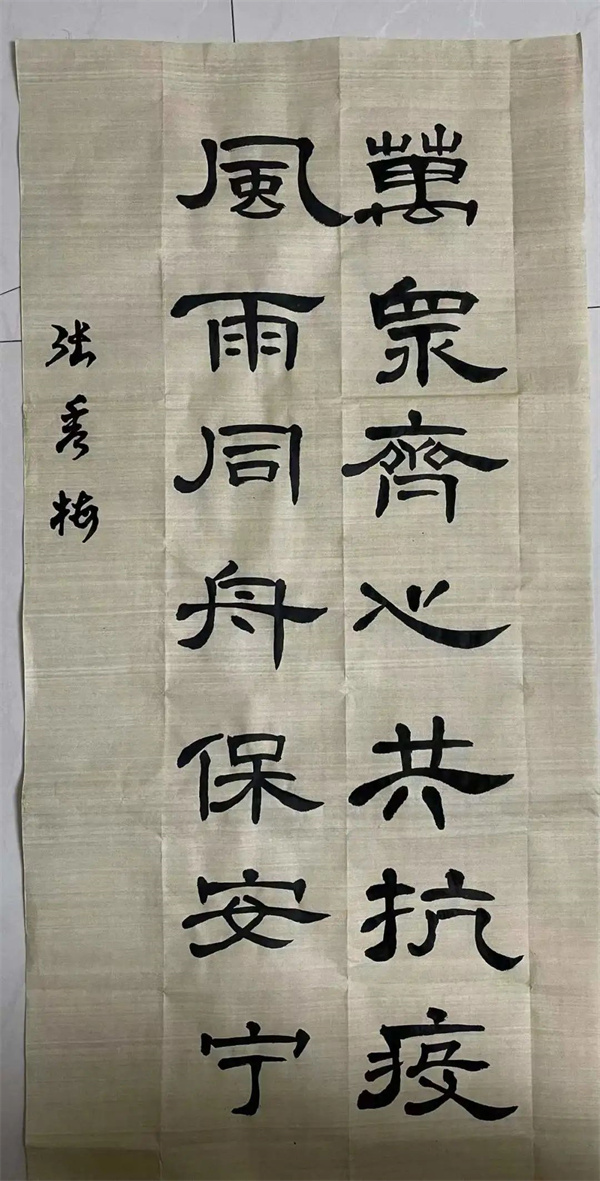 萬眾齊心共抗疫
風雨同舟保安宁
张秀梅